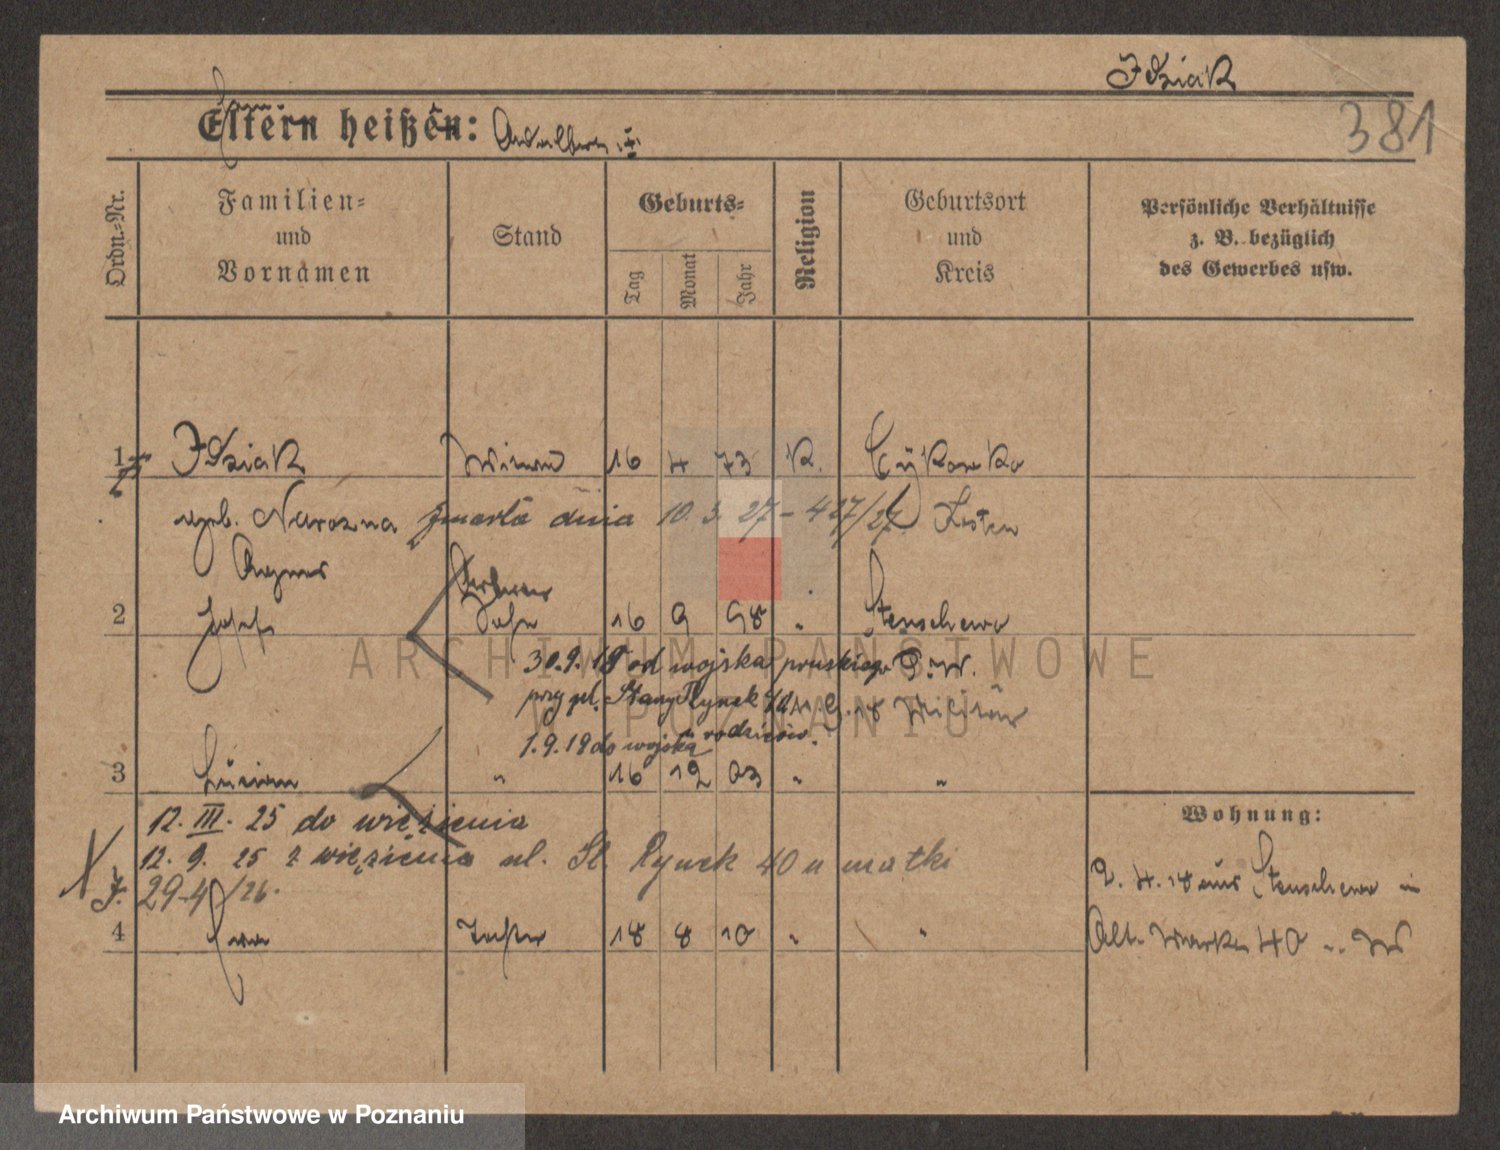 Idziak
381
Eltern heißen: Adalbert u.
Ordn.-Nr.
Familien-
und
Vornamen
Stand
Geburts-
Tag
Monat
Jahr
Religion
Geburtsort
und
Kreis
Persönliche Verhältnisse
z. B. bezüglich
des Gewerbes usw.
1 Idziak 16 4 73 K.
geb. zmarła dnia 10. 3. 27 – 427/27 Kosten
Agnes
2 Josef Sohn 16 9 98 " Stenschewo
30.9.19 od wojska pruskiego
przy ul. Stary Rynek Militär
1.9.19 do wojska rodziców.
3 " 16 12 03 " "
12. III. 25 do więzienia
12. 9. 25 z więzienia ul. St. Rynek 40 u matki
29-4/26.
4 Tochter 18 8 10 " "
Wohnung:
2. 4. 18 aus Stenschewo in
Alt. Markt 40
ARCHIWUM PAŃSTWOWE
W POZNANIU
Archiwum Państwowe w Poznaniu